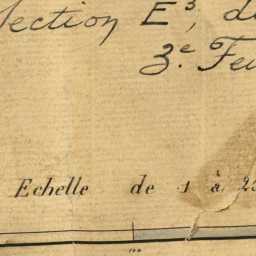 Section E³, d
3.e Feu
Echelle de 1 à 25